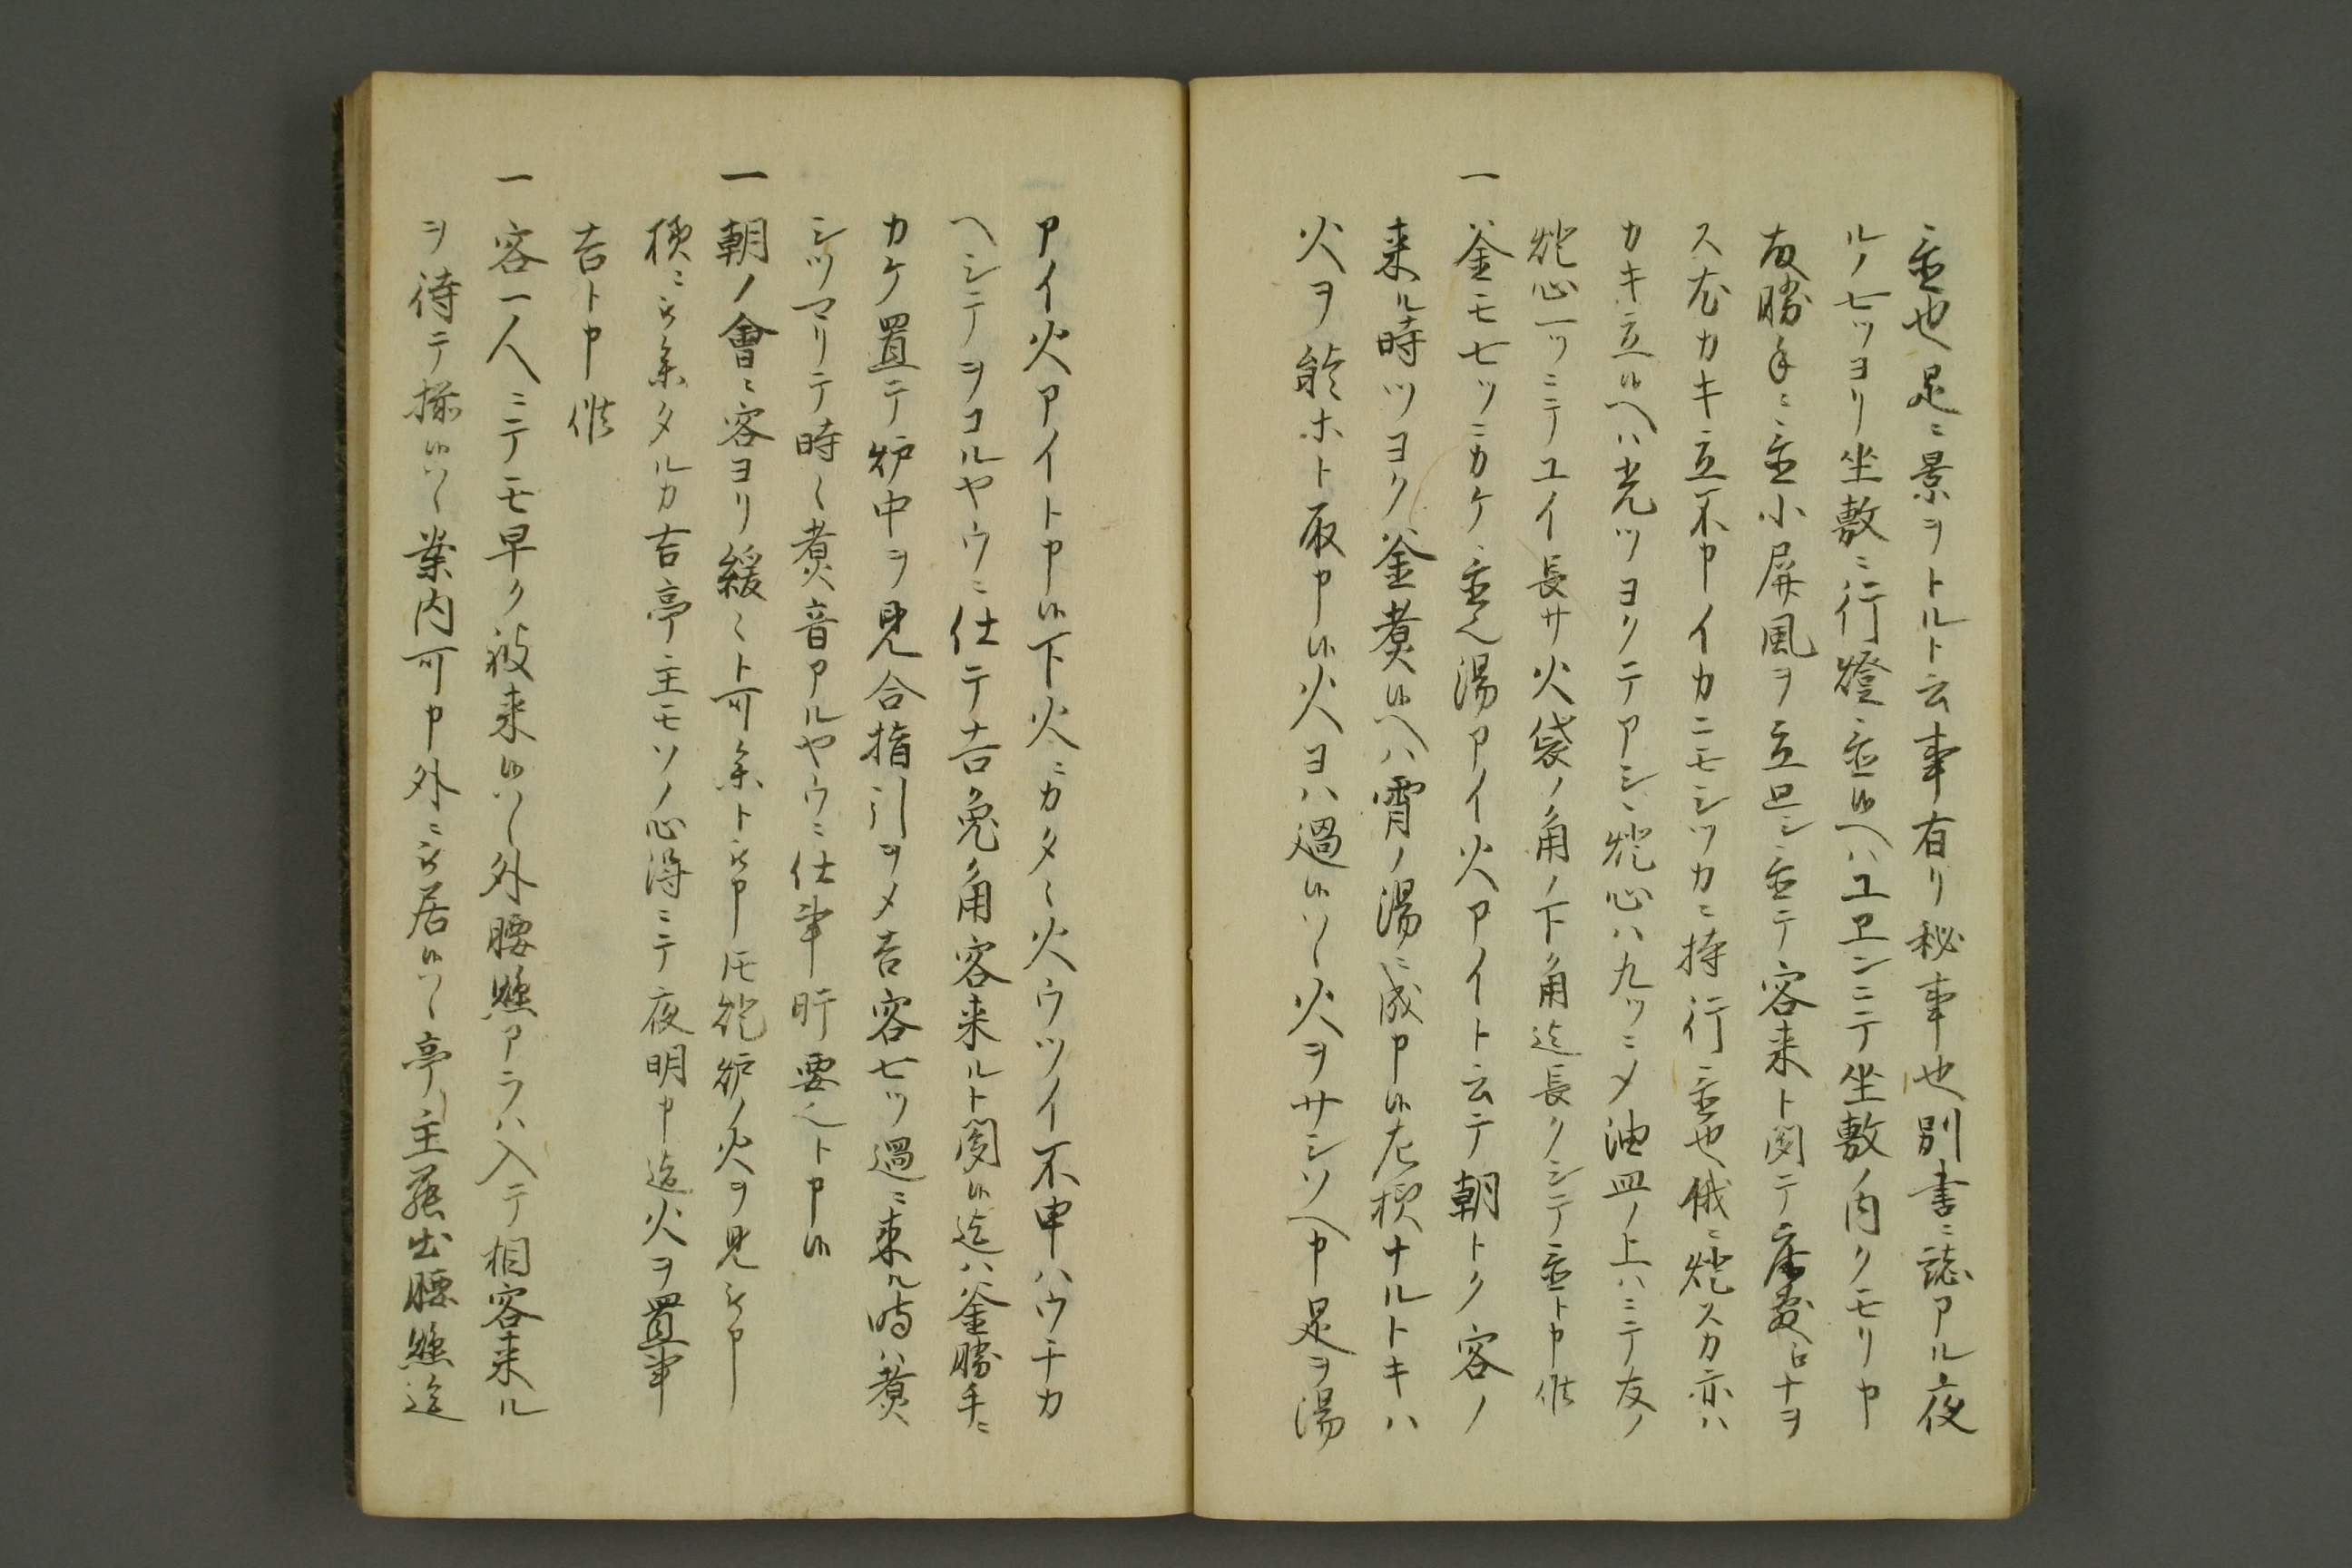 置也是ニ景ヲトルト云事有リ秘事也別書ニ誌アル夜
ルノ七ツヨリ坐敷ニ行燈置候ヘハユエンニテ坐敷ノ内クモリ申
故勝手ニ置小屏風ヲ立廻シ置テ客来ト聞テ床ナヲ
ス尤カキ立不申イカニモシツカニ持行置也俄ニ燈スカ亦ハ
カキ立候ヘハ光ツヨクテアシヽ燈心ハ九ツニメ油皿ノ上ハニテ友ノ
燈心一ツニテユイ長サ火袋ノ角ノ下角迄長クシテ置ト申伝
一 釜モ七ツニカケ置也湯アイ火アイト云テ朝トク客ノ
来ル時ツヨク釜煮候ヘハ宵ノ湯ニ成申候左様ナルトキハ
火ヲ能ホト取申候火ヨハ過候ハヽ火ヲサシソヘ申是ヲ湯
アイ火アイト申候下火ニカタヽ火ウツイ不申ハウチカ
ヘシテヲコルヤウニ仕テ吉兎角客来ルト聞候迄ハ釜勝手ニ
カケ置テ炉中ヲ見合指引ヲメ吉客七ツ過ニ来ル時ハ煮
シツマリテ時々煮音アルヤウニ仕事肝要也ト申候
一 朝ノ會ニ客ヨリ緩々ト可参ト被申氏炉ノ火ヲ見
様ニ被参タルカ吉亭主モソノ心得ニテ夜明申迄火ヲ置事
吉ト申伝
一 客一人ニテモ早ク被来候ハヽ外腰懸アラハ入テ相客来ル
ヲ待テ揃候ハヽ案内可申外ニ被居候ハヽ亭主罷出腰懸迄